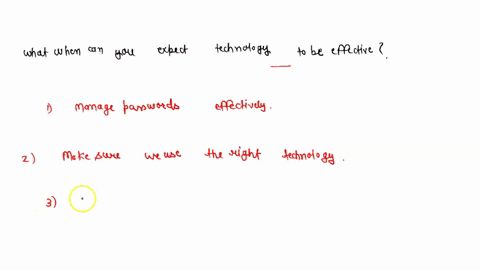 what when can you expect technology to be effective?
1) manage passwords effectively.
2) Make sure we use the right technology.
3)